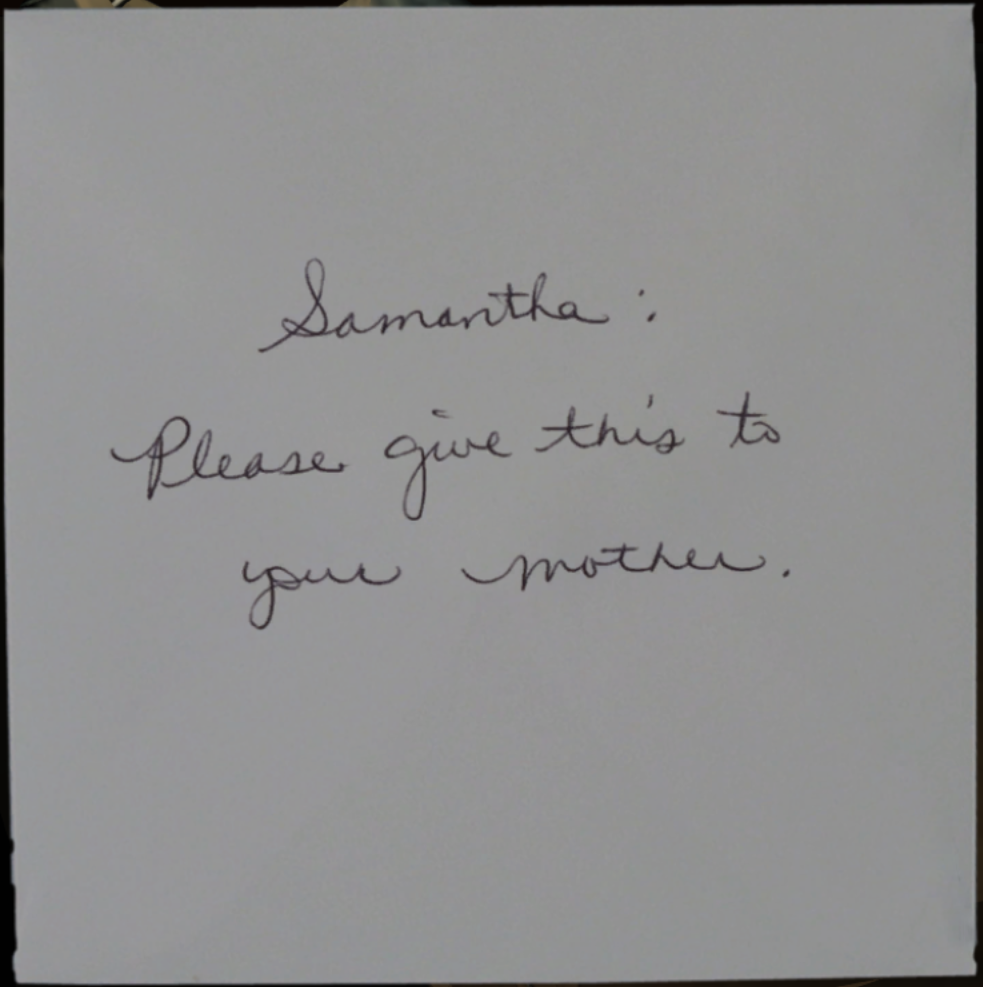 Samantha :
Please give this to
your mother.